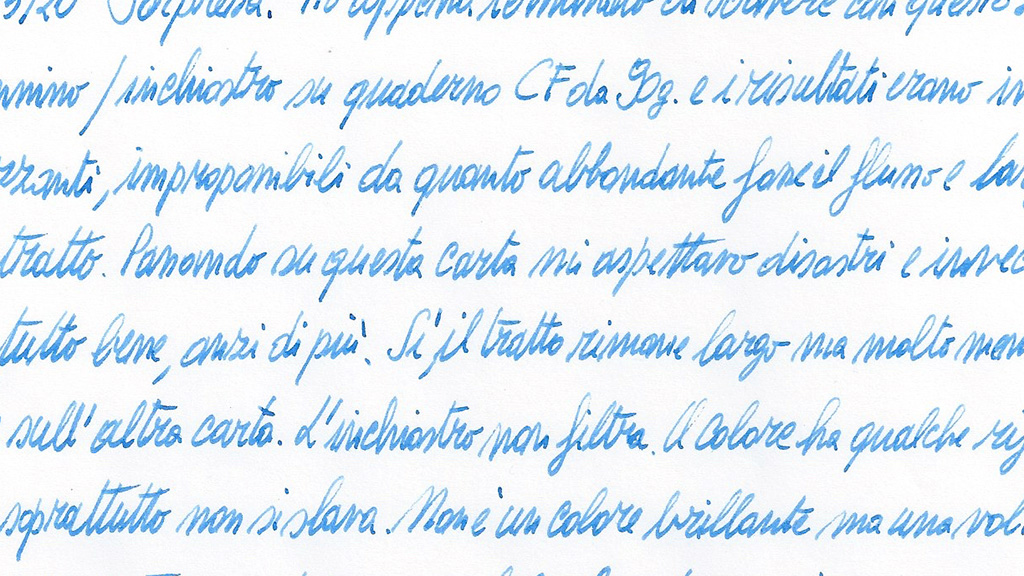 3/20 Sorpresa. Ho appena terminato di scrivere con questo
nnino / inchiostro su quaderno CF da 90g. e i risultati erano in
zzanti, improponibili da quanto abbondante fosse il flusso e lar
tratto. Passando su questa carta mi aspettavo disastri e invec
tutto bene, anzi di più. Sì, il tratto rimane largo ma molto men
sull'altra carta. L'inchiostro non filtra. Il colore ha qualche
soprattutto non si slava. Non è un colore brillante ma una vol